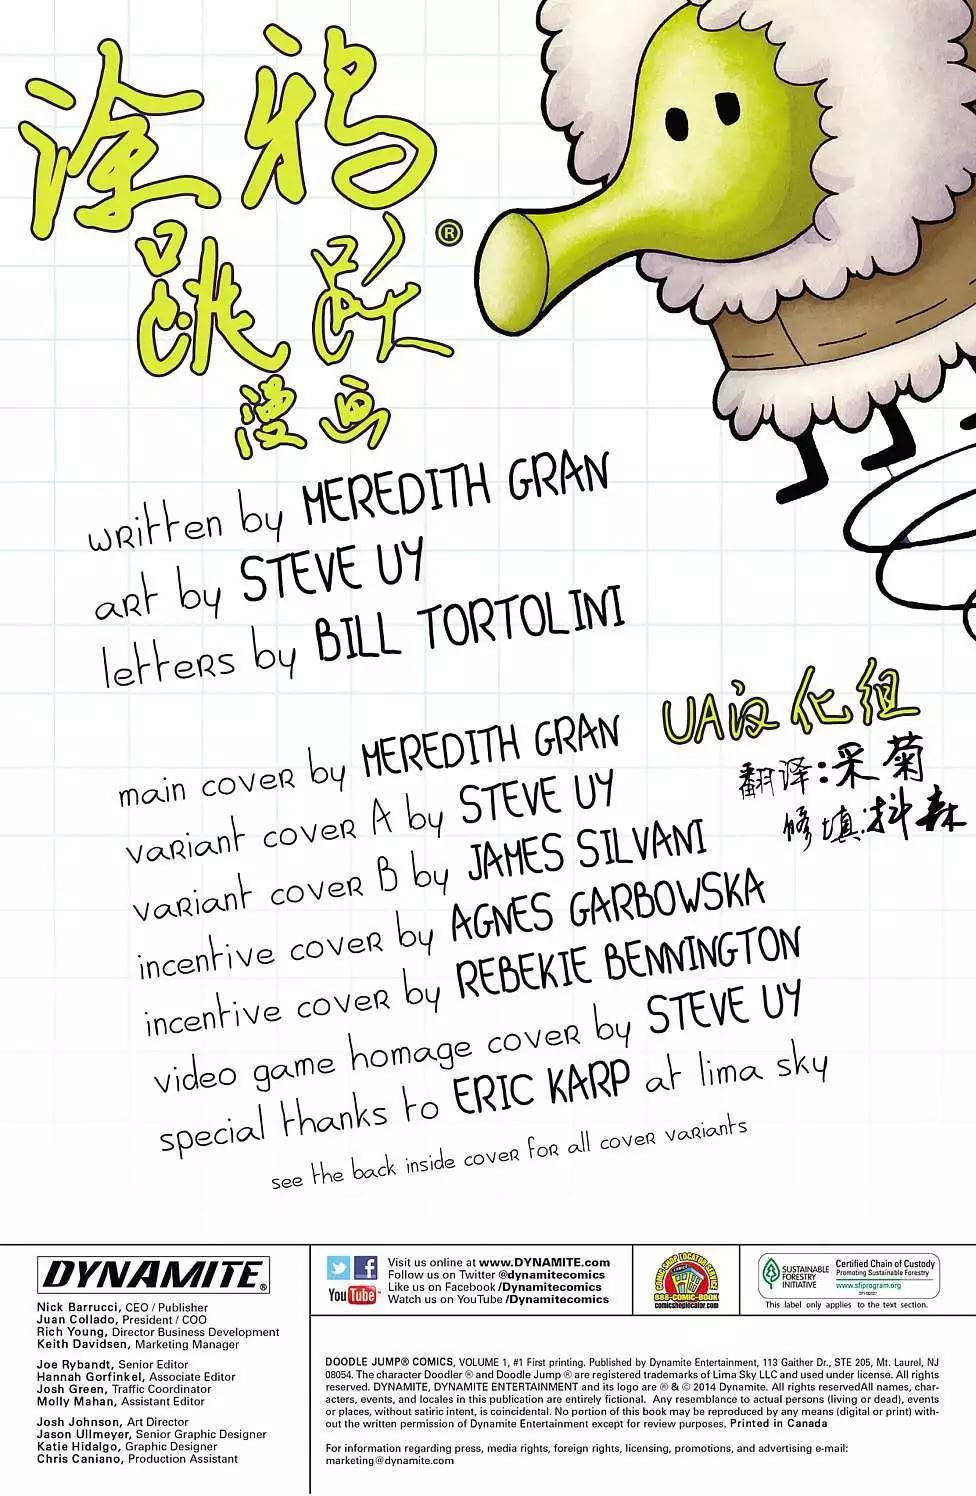 涂鸦
跳跃®
漫画
written by MEREDITH GRAN
art by STEVE UY
letters by BILL TORTOLINI
UA汉化组
翻译:采菊
修填:抖森
main cover by MEREDITH GRAN
variant cover A by STEVE UY
variant cover B by JAMES SILVANI
incentive cover by AGNES GARBOWSKA
incentive cover by REBEKIE BENNINGTON
video game homage cover by STEVE UY
special thanks to ERIC KARP at lima sky
see the back inside cover for all cover variants
DYNAMITE®
Nick Barrucci, CEO / Publisher
Juan Collado, President / COO
Rich Young, Director Business Development
Keith Davidsen, Marketing Manager
Joe Rybandt, Senior Editor
Hannah Gorfinkel, Associate Editor
Josh Green, Traffic Coordinator
Molly Mahan, Assistant Editor
Josh Johnson, Art Director
Jason Ullmeyer, Senior Graphic Designer
Katie Hidalgo, Graphic Designer
Chris Caniano, Production Assistant
Visit us online at www.DYNAMITE.com
Follow us on Twitter @dynamitecomics
Like us on Facebook /Dynamitecomics
YouTube Watch us on YouTube /Dynamitecomics
COMIC SHOP LOCATOR SERVICE
888-COMIC-BOOK
comicshoplocator.com
SUSTAINABLE
FORESTRY
INITIATIVE
Certified Chain of Custody
Promoting Sustainable Forestry
www.sfiprogram.org
This label only applies to the text section.
DOODLE JUMP® COMICS, VOLUME 1, #1 First printing. Published by Dynamite Entertainment, 113 Gaither Dr., STE 205, Mt. Laurel, NJ
08054. The character Doodler ® and Doodle Jump ® are registered trademarks of Lima Sky LLC and used under license. All rights
reserved. DYNAMITE, DYNAMITE ENTERTAINMENT and its logo are ® & © 2014 Dynamite. All rights reservedAll names, char-
acters, events, and locales in this publication are entirely fictional. Any resemblance to actual persons (living or dead), events
or places, without satiric intent, is coincidental. No portion of this book may be reproduced by any means (digital or print) with-
out the written permission of Dynamite Entertainment except for review purposes. Printed in Canada
For information regarding press, media rights, foreign rights, licensing, promotions, and advertising e-mail:
marketing@dynamite.com